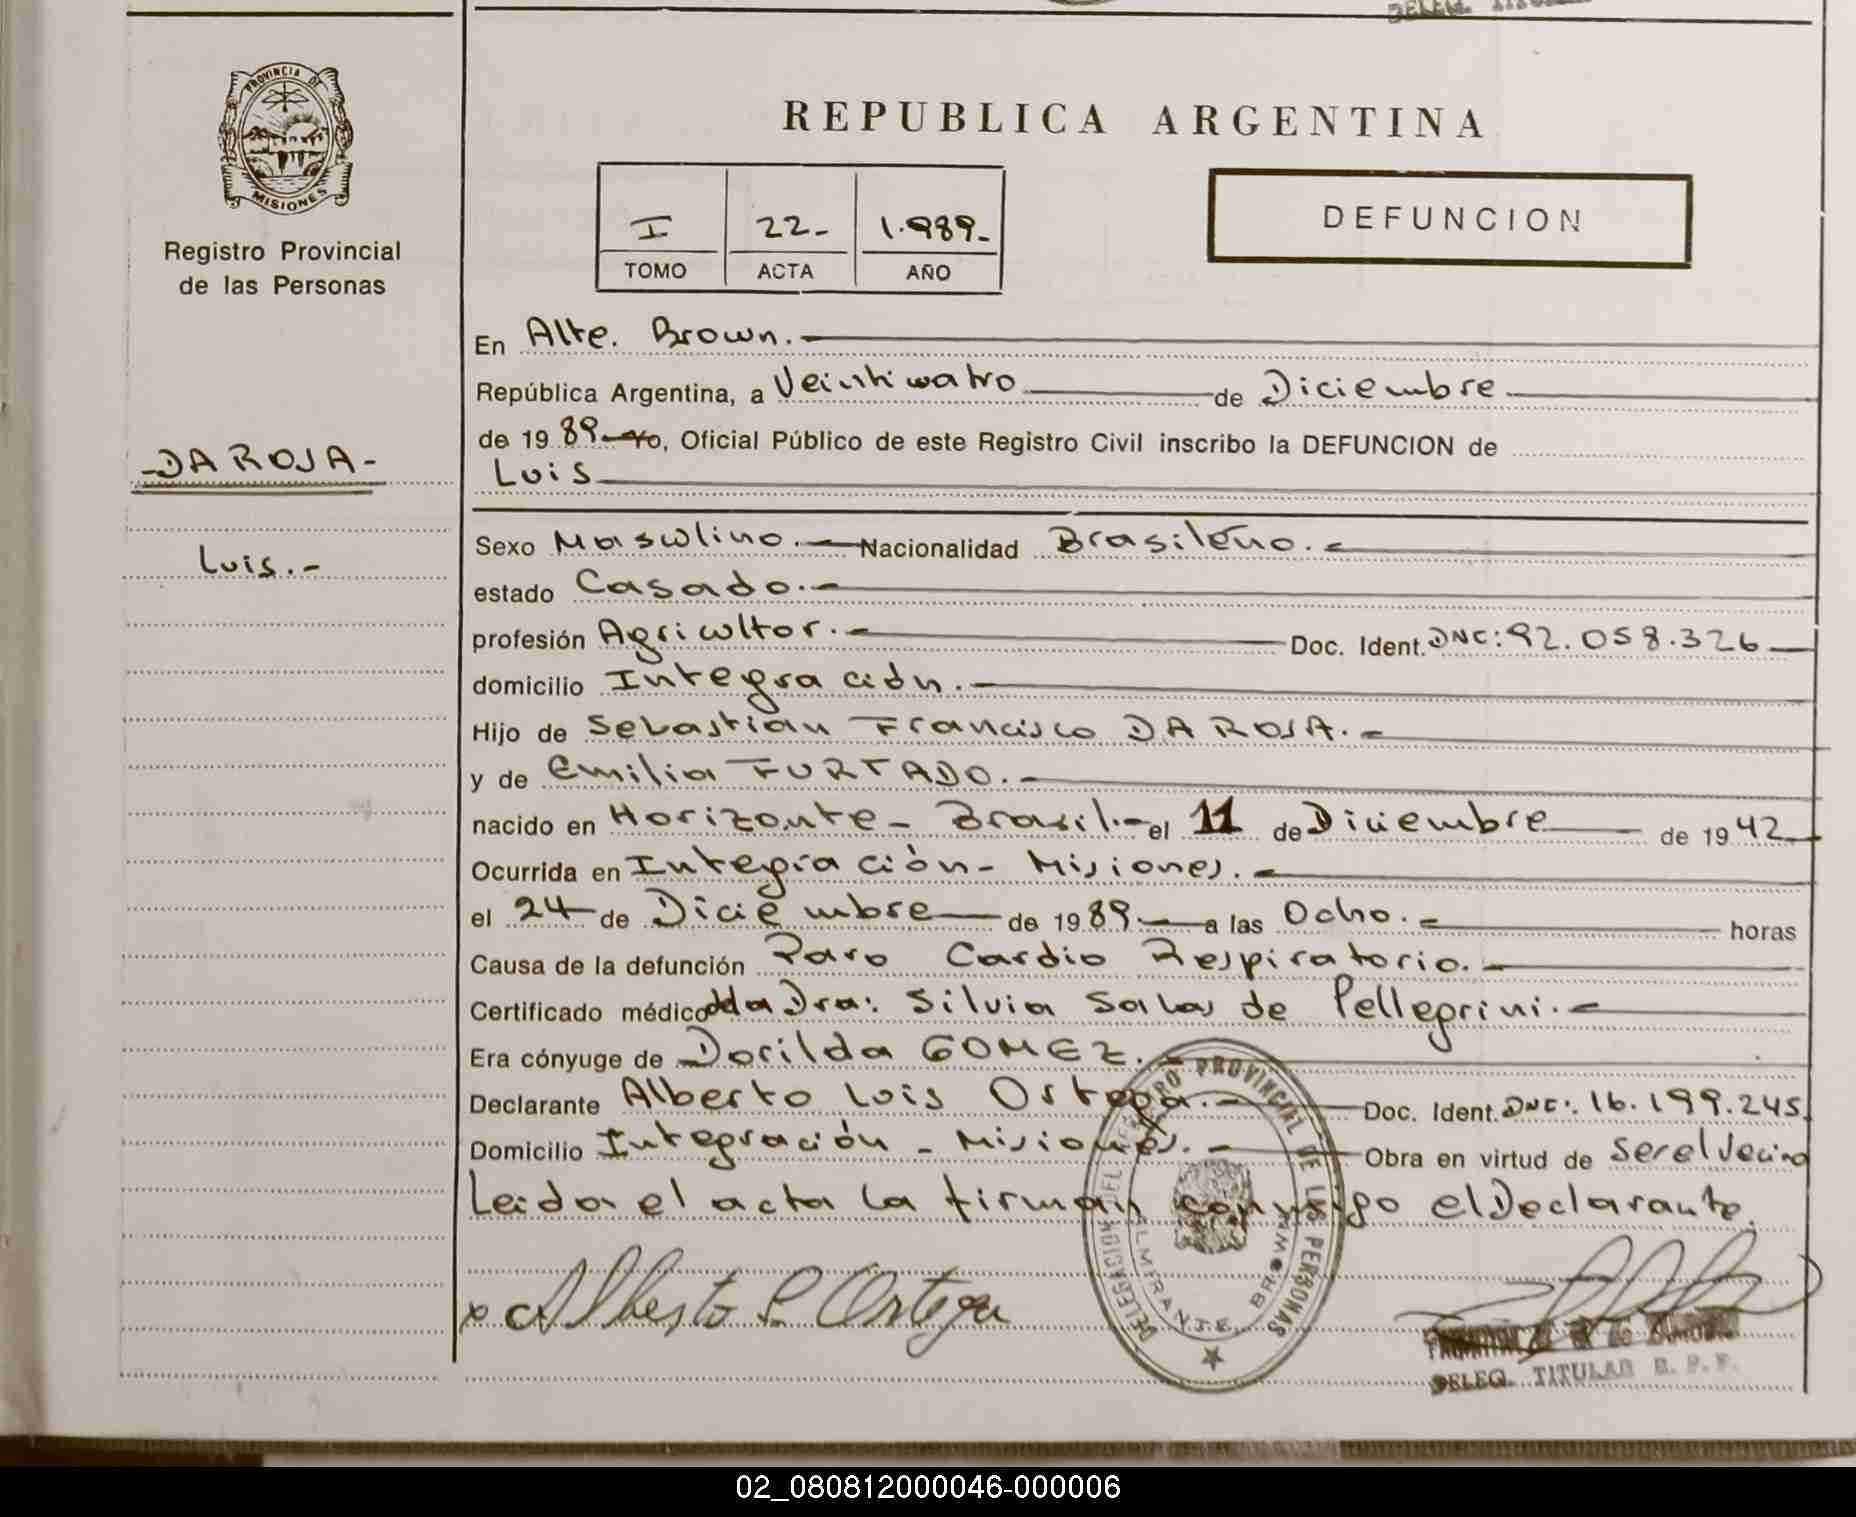 DELEG. TITULAR
PROVINCIA DE
MISIONES
Registro Provincial
de las Personas
-DA ROSA-
Luis.-
REPUBLICA ARGENTINA
I 22- 1.989-
TOMO ACTA AÑO
DEFUNCION
En Alte. Brown.-
República Argentina, a Veinticuatro de Diciembre
de 19 89 yo, Oficial Público de este Registro Civil inscribo la DEFUNCION de
Luis
Sexo Masculino.- Nacionalidad Brasileño.-
estado Casado.-
profesión Agricultor.- Doc. Ident. DNC: 92.058.326
domicilio Integración.-
Hijo de Sebastián Francisco DA ROSA.-
y de Emilia FURTADO.-
nacido en Horizonte- Brasil.- el 11 de Diciembre de 19 42
Ocurrida en Integración- Misiones.-
el 24 de Diciembre de 19 89 a las Ocho.- horas
Causa de la defunción Paro Cardio Respiratorio.-
Certificado médico de la Dra: Silvia Salas de Pellegrini.-
Era cónyuge de Dorilda GOMEZ.-
Declarante Alberto Luis Ortega.- Doc. Ident. DNC: 16.199.245.
Domicilio Integración - Misiones.- Obra en virtud de ser el vecino
Leida el acta la firman conmigo el Declarante.
x Alberto L. Ortega
DELEGACION DEL REGISTRO PROVINCIAL DE LAS PERSONAS
ALMIRANTE BROWN
DELEG. TITULAR R. P. P.
02_080812000046-000006